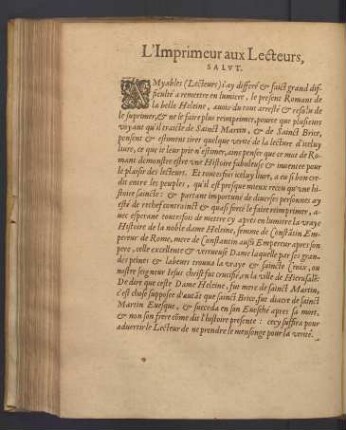 L'Imprimeur aux Lecteurs,
SALVT.
AMyables (Lecteurs) i'ay differé & faict grand diff-
ficulté a remettre en lumiere, le present Romans de
la belle Heleine, auois du tout arresté & resolu de
le suprimer, & ne le faire plus reimprimer, pource que plusieurs
voyans qu'il traicte de Sainct Martin, & de Sainct Brice,
pensent & estiment tirer quelque verité de la lecture d'iceluy
liure, ce que ie leur prie n'estimer, ains penser que ce mot de Ro-
mans demonstre estre vne Histoire fabuleuse & inuentee pour
le plaisir des lecteurs. Et toutesfois icelluy liure, a eu si bon cre-
dit entre les peuples, qu'il est presque mieux receu qu'vne hi-
stoire saincte: & partant importuné de diuerses personnes ay
esté de rechef contrainct & quasi forcé le faire reimprimer, a-
uec esperance toutesfois de mettre cy apres en lumiere la vraye
Histoire de la noble dame Heleine, femme de Constātin Em-
pereur de Rome, mere de Constantin aussi Empereur apres son
pere, celle excellente & vertueuse Dame laquelle par ses gran-
des peines & labeurs trouua la vraye & saincte Croix, ou
nostre seigneur Iesus christ fut crucifié, en la ville de Hierusalē.
De dire que ceste Dame Heleine, fut mere de sainct Martin,
c'est chose supposee d'autāt que sainct Brice, fut diacre de sainct
Martin Euesque, & succeda en son Euesché apres sa mort,
& non son frere cōme dit l'histoire presente : cecy suffira pour
aduertir le Lecteur de ne prendre le mensonge pour la verité.